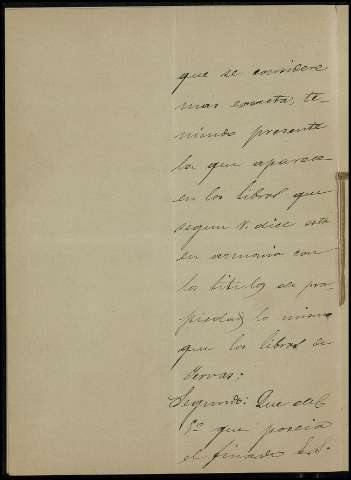 que se considere
mas exacta, te-
niendo presente
la que aparece
en los libros que
segun V. dice está
en armonia con
los titulos de pro-
piedad, lo mismo
que los libros de
Segundo: Que del
que poseia
el finado